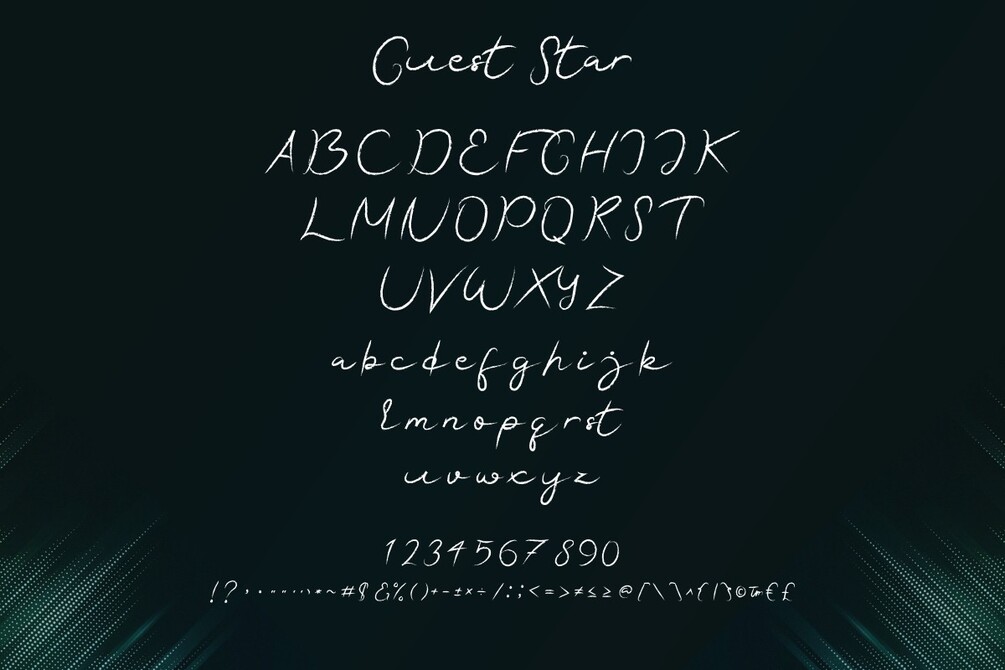 Guest Star
ABCDEFGHIJK
LMNOPQRST
UVWXYZ
abcdefghijk
lmnopqrst
uvwxyz
1234567890
!?,.""''*~#$&%()+-±×÷/:;<=>≠≤≥@[\]^{|}©™€£